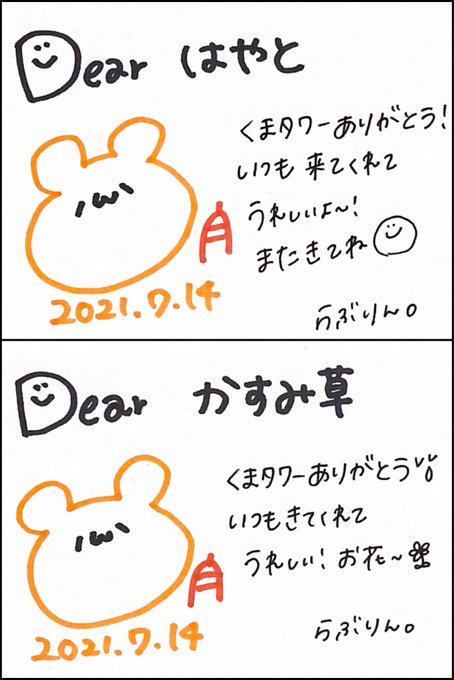 Dear はやと
くまタワーありがとう!
いつも来てくれて
うれしいよ〜!
またきてね
2021.7.14
らぶりん。
Dear かすみ草
くまタワーありがとう
いつもきてくれて
うれしい! お花〜
2021.7.14
らぶりん。